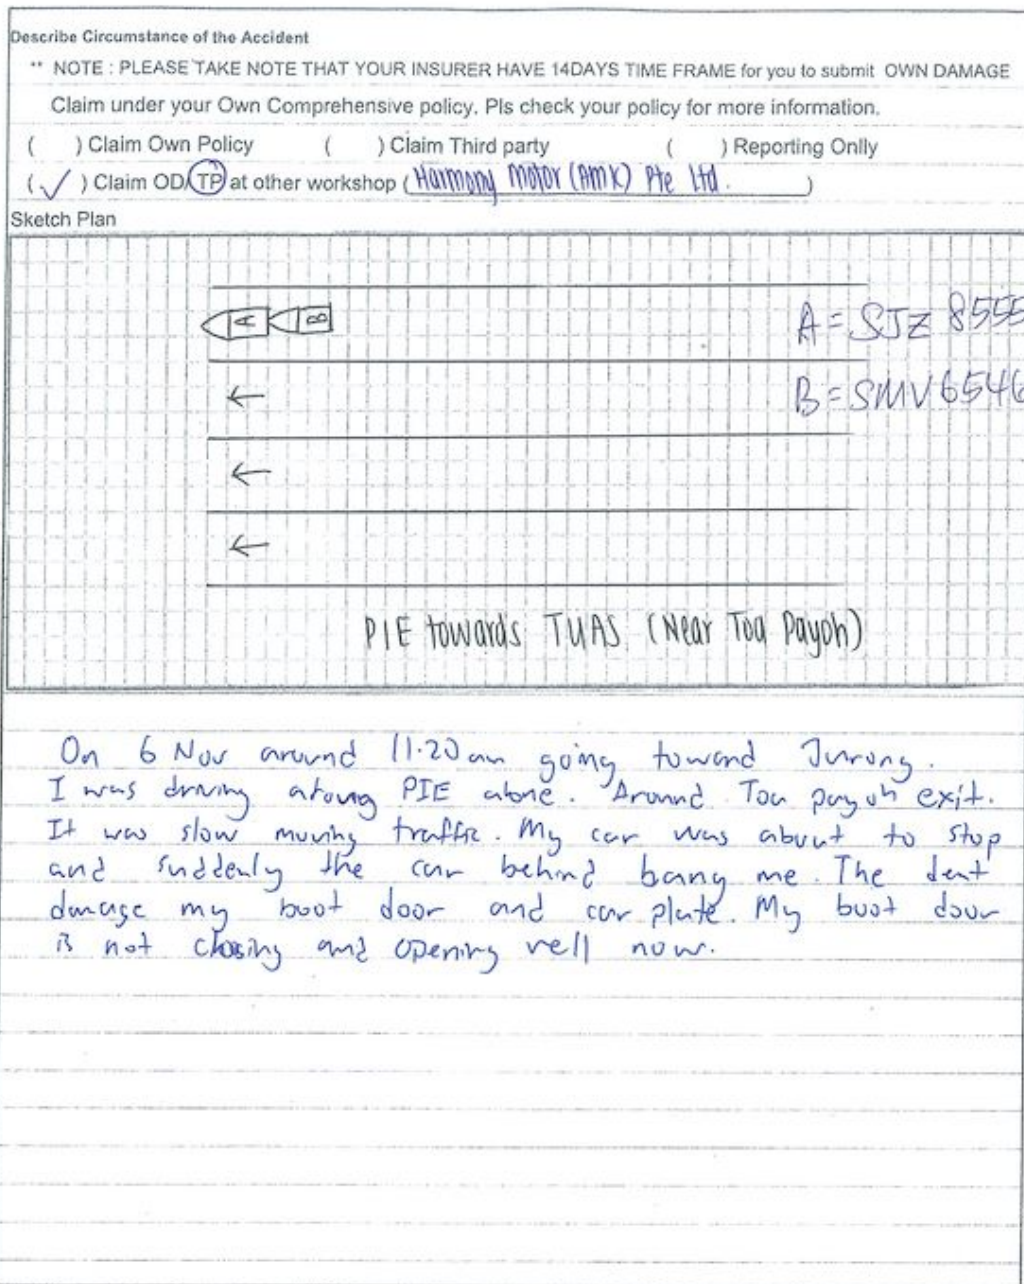 Describe Circumstance of the Accident
** NOTE : PLEASE TAKE NOTE THAT YOUR INSURER HAVE 14DAYS TIME FRAME for you to submit OWN DAMAGE
Claim under your Own Comprehensive policy. Pls check your policy for more information.
( ) Claim Own Policy ( ) Claim Third party ( ) Reporting Onlly
( ✓ ) Claim OD/TP at other workshop ( Harmony Motor (AMK) Pte Ltd. )
Sketch Plan
A B
A = SJZ 8555
B = SMV 6546
←
←
←
PIE towards TUAS (Near Toa Payoh)
On 6 Nov around 11.20 am going toward Jurong.
I was driving along PIE alone. Around Toa payoh exit.
It was slow moving traffic. My car was about to stop
and suddenly the car behind bang me. The dent
damage my boot door and car plate. My boot door
is not closing and opening well now.